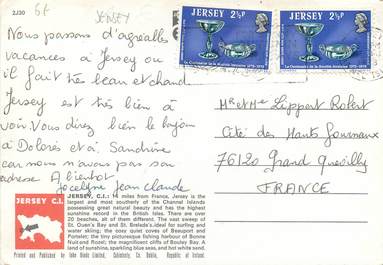 2/30
6f
JERSEY
Nous passons d'agréables
vacances à Jersey ou
il fait très beau et chaud
Jersey est très bien à
voir. Vous direz bien le bonjour
à Dolorès et à Sandrine
car nous n'avons pas son
adresse A bientôt
Jocelyne Jean Claude
JERSEY 2½p
JERSEY 2½p
Mr et Me Lippert Robert
Cité des Hauts Journaux
76120 Grand Quevilly
FRANCE
JERSEY C.I.
JERSEY, C.I.: 14 miles from France, Jersey is the
largest and most southerly of the Channel Islands
possessing great natural beauty and has the highest
sunshine record in the British Isles. There are over
20 beaches, all of them different. The vast sweep of
St. Ouen's Bay and St. Brelade's ideal for surfing and
water skiing; the cosy quiet coves of Beauport and
Portelet; the tiny picturesque fishing harbour of Bonne
Nuit and Rozel; the magnificent cliffs of Bouley Bay. A
land of sunshine, sparkling blue seas, and hot white sand.
Printed and Published by John Hinde Limited, Cabinteely, Co. Dublin, Republic of Ireland.